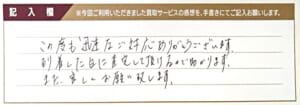 記入欄
※今回ご利用いただきました買取サービスの感想を、手書きにてご記入お願いします。
この度も迅速なご対応ありがとうございます。
到着した日に査定して頂けるので助かります。
また、宜しくお願い致します。